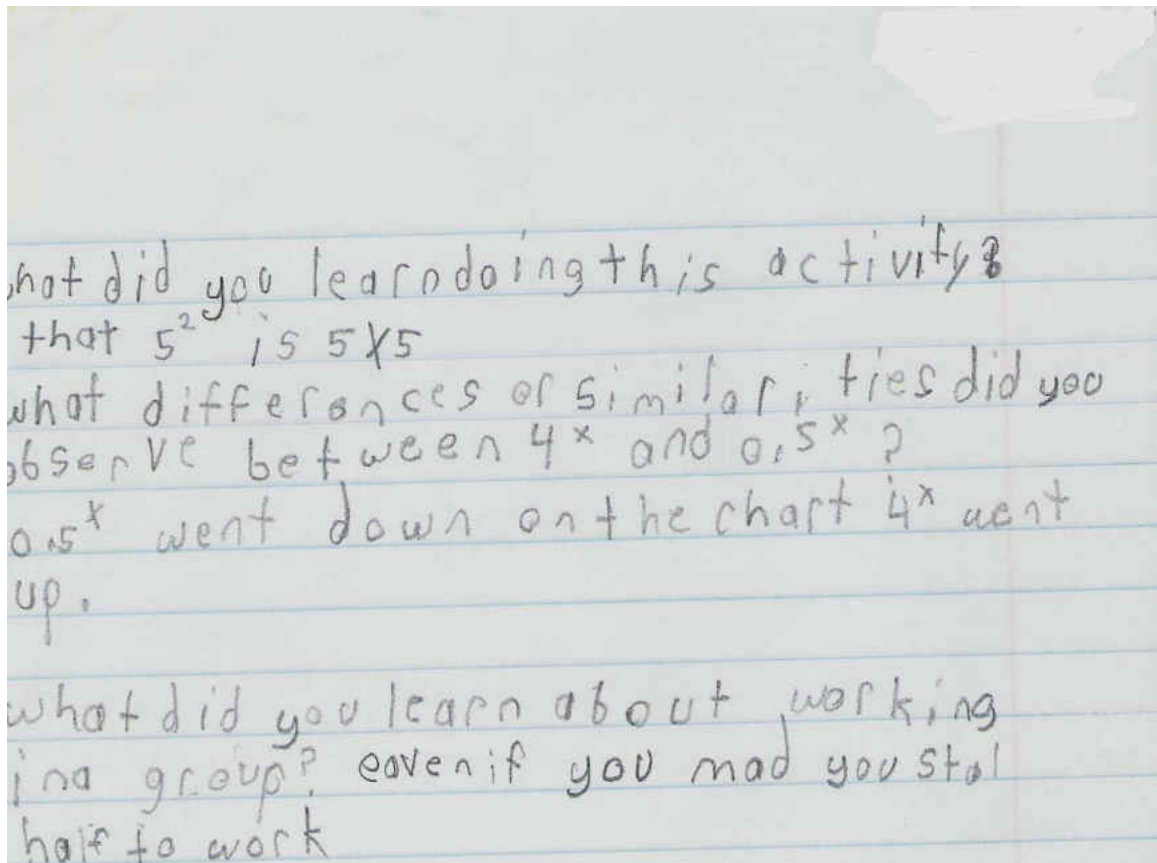 what did you learn doing this activity?
that 5² is 5x5
what differences or similarities did you
observe between 4ˣ and 0.5ˣ ?
0.5ˣ went down on the chart 4ˣ went
up.
what did you learn about working
in a group? eaven if you mad you stal
half to work